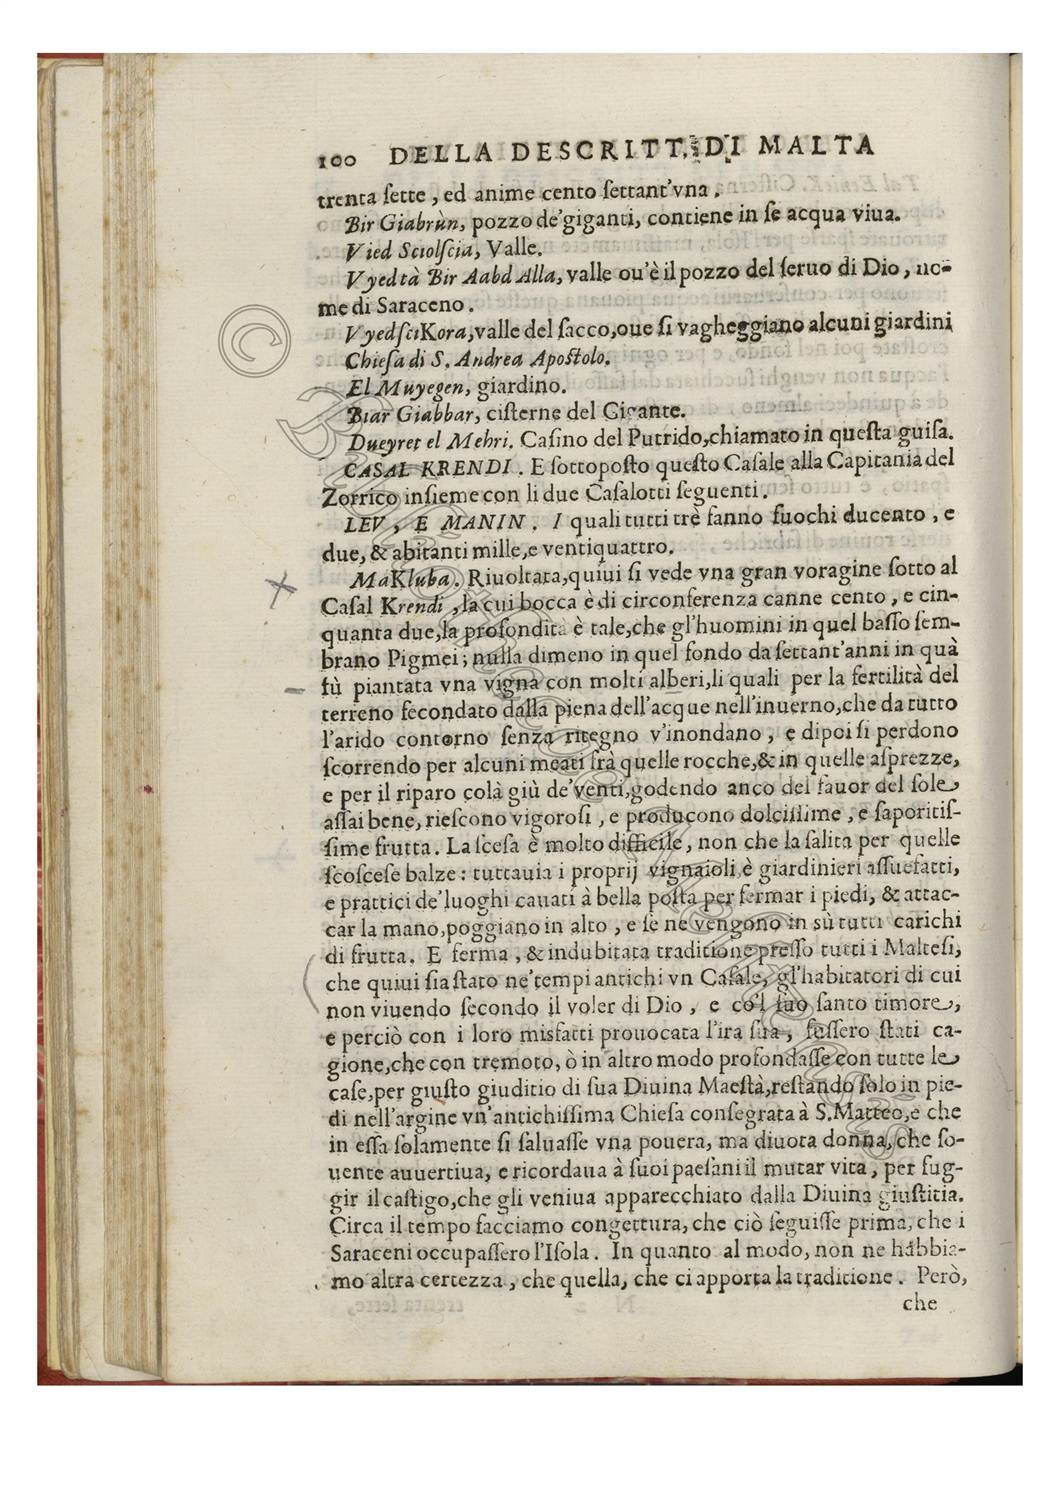 100 DELLA DESCRITT. DI MALTA
trenta ſette, ed anime cento ſettant'vna.
Bir Giabrùn, pozzo de'giganti, contiene in ſe acqua viua.
Vied Sciolſcia, Valle.
Vyedtà Bir Aabd Alla, valle ou'è il pozzo del ſeruo di Dio, no-
me di Saraceno.
VyedſciKora, valle del ſacco, oue ſi vagheggiano alcuni giardini
Chieſa di S. Andrea Apoſtolo.
El Muyegen, giardino.
Biar Giabbar, ciſterne del Gigante.
Dueyret el Mehri. Caſino del Putrido, chiamato in queſta guiſa.
CASAL KRENDI. E ſottopoſto queſto Caſale alla Capitania del
Zorrico inſieme con li due Caſalotti ſeguenti.
LEV, E MANIN. I quali tutti trè fanno fuochi ducento, e
due, & abitanti mille, e ventiquattro.
MaKluba. Riuoltata, quiui ſi vede vna gran voragine ſotto al
Caſal Krendi, la cui bocca è di circonferenza canne cento, e cin-
quanta due, la profondità è tale, che gl'huomini in quel baſſo ſem-
brano Pigmei; nulla dimeno in quel fondo da ſettant'anni in quà
fù piantata vna vigna con molti alberi, li quali per la fertilità del
terreno fecondato dalla piena dell'acque nell'inuerno, che da tutto
l'arido contorno ſenza ritegno v'inondano, e dipoi ſi perdono
ſcorrendo per alcuni meati frà quelle rocche, & in quelle aſprezze,
e per il riparo colà giù de'venti, godendo anco del fauor del ſole
aſſai bene, rieſcono vigoroſi, e producono dolciſſime, e ſaporitiſ-
ſime frutta. La ſceſa è molto difficile, non che la ſalita per quelle
ſcoſceſe balze: tuttauia i proprij vignaioli, è giardinieri aſſuefatti,
e prattici de'luoghi cauati à bella poſta per fermar i piedi, & attac-
car la mano, poggiano in alto, e ſe ne vengono in sù tutti carichi
di frutta. E ferma, & indubitata traditione preſſo tutti i Malteſi,
che quiui ſia ſtato ne'tempi antichi vn Caſale, gl'habitatori di cui
non viuendo ſecondo il voler di Dio, e co'l ſuo ſanto timore,
e perciò con i loro misfatti prouocata l'ira ſua, fuſſero ſtati ca-
gione, che con tremoto, ò in altro modo profondaſſe con tutte le
caſe, per giuſto giuditio di ſua Diuina Maeſtà, reſtando ſolo in pie-
di nell'argine vn'antichiſſima Chieſa conſegrata à S. Matteo, e che
in eſſa ſolamente ſi ſaluaſſe vna pouera, ma diuota donna, che ſo-
uente auuertiua, e ricordaua à ſuoi paeſani il mutar vita, per fug-
gir il caſtigo, che gli veniua apparecchiato dalla Diuina giuſtitia.
Circa il tempo facciamo congettura, che ciò ſeguiſſe prima, che i
Saraceni occupaſſero l'Iſola. In quanto al modo, non ne habbia-
mo altra certezza, che quella, che ci apporta la traditione. Però,
che